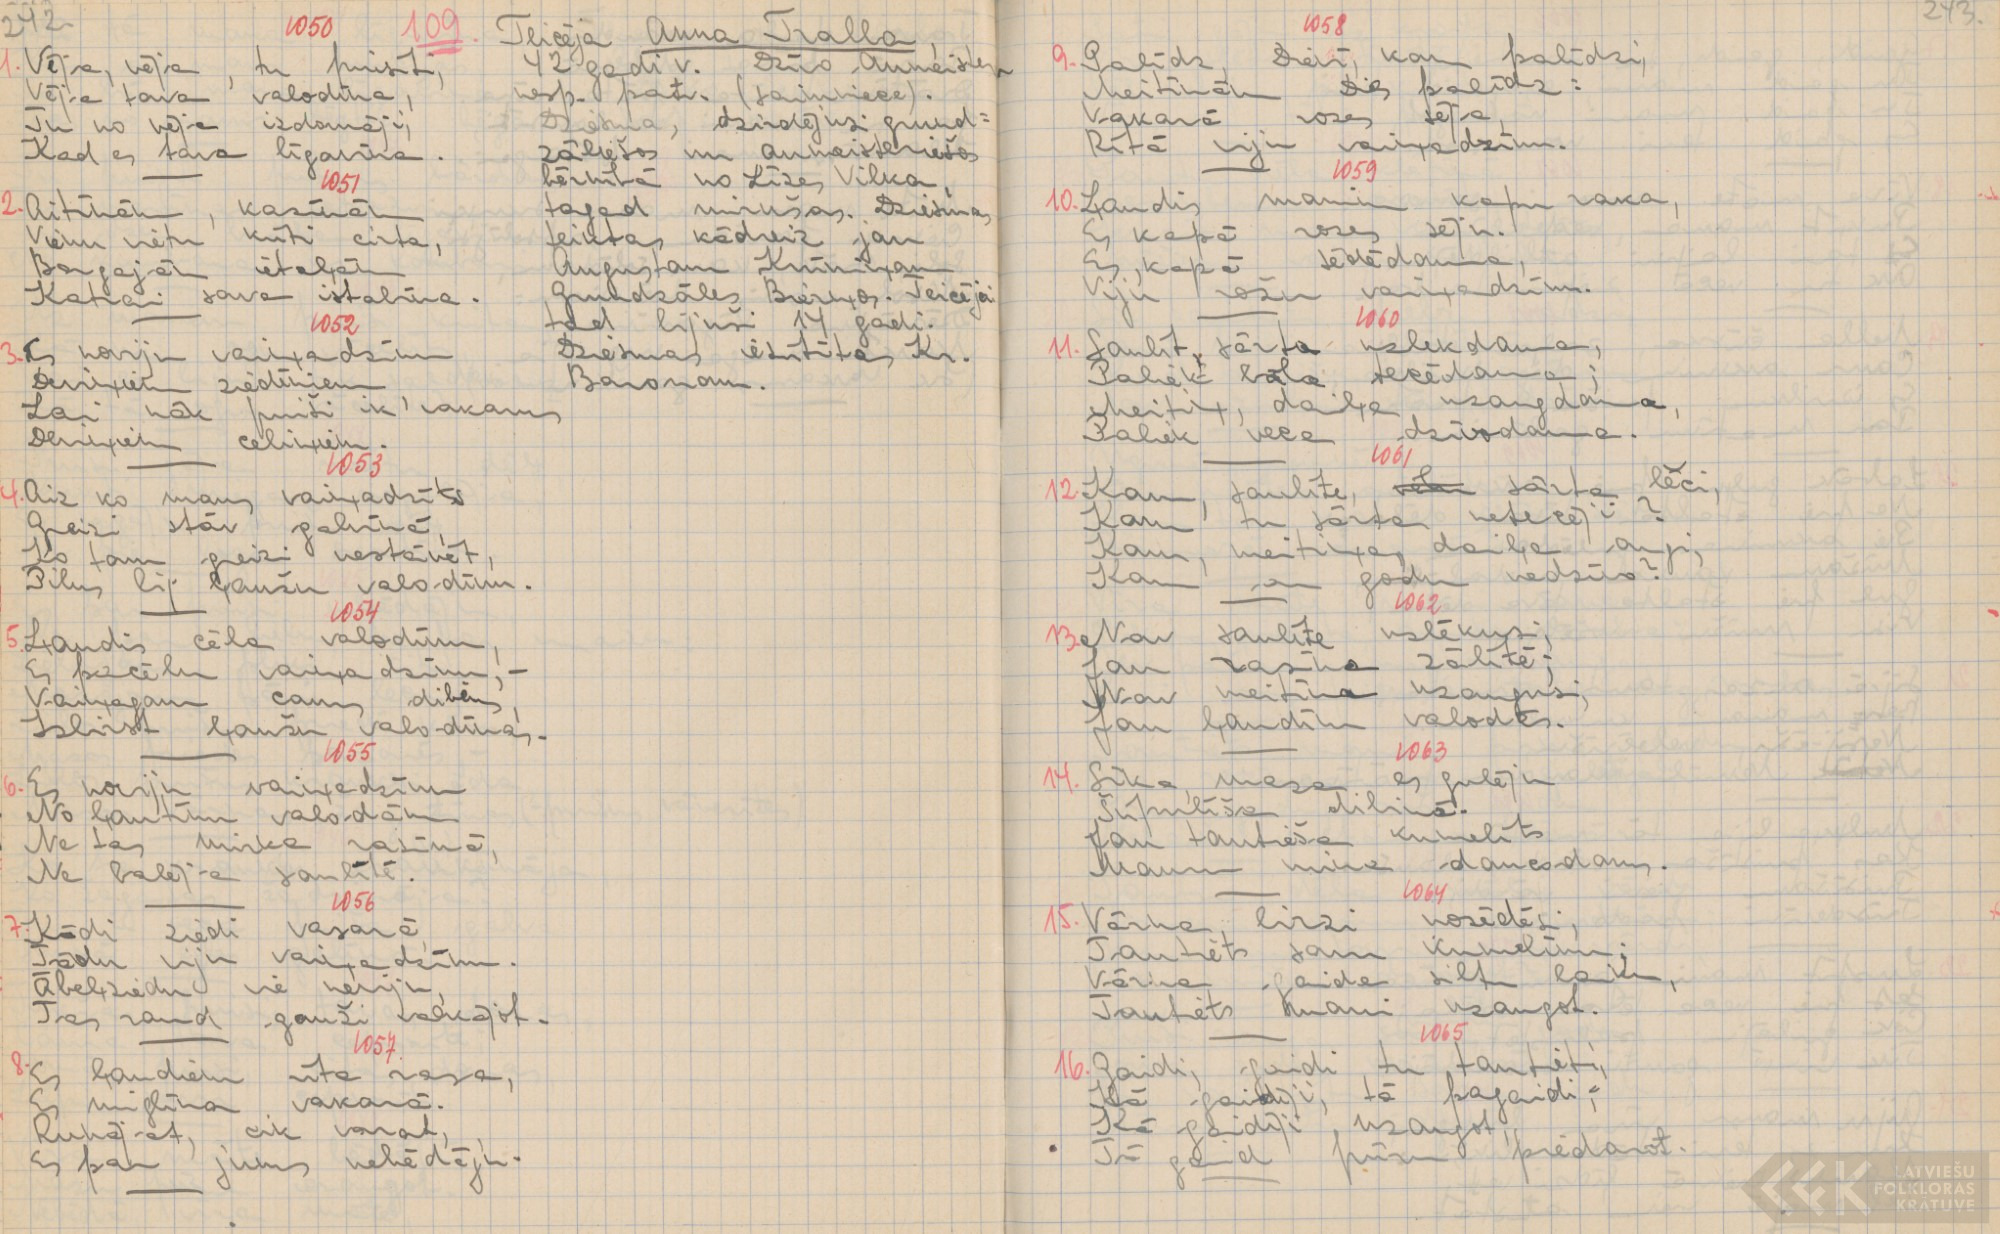 242.
1050
109.
1. Vēja, vēja, tu puisīti,
Vēja tava valodiņa,
Tu no vēja izdomāji,
Kad es tava līgaviņa.
1051
2. Aitiņām, kaziņām
Vienu vietu kūti cirta,
Bargajām ietaļām
Katrai sava istabiņa.
1052
3. Es noviju vaiņadziņu
Deviņiem ziediņiem
Lai nāk puiši ik' vakarus
Deviņiem celiņiem.
1053
4. Aiz ko mans vaiņadziņš
Greizi stāv galviņā,
Ko tam greizi nestāvēt,
Pilns lij ļaužu valodiņu.
1054
5. Ļaudis cēla valodiņu,
Es pacēlu vaiņadziņu, –
Vaiņagam caurs dibens,
Izbirst ļaužu valodiņas.
1055
6. Es noviju vaiņadziņu
No ļautiņu valodām
Ne tas mirka rasiņā,
Ne balēja saulītē.
1056
7. Kādi ziedi vasarā,
Tādu viju vaiņadziņu.
Ābeļziedu vie neviju,
Tas raud gauži valkājot.
1057
8. Es ļaudiem rīta rasa,
Es migliņa vakarā.
Runājat, cik varat,
Es par jums nebēdāju.
Teicēja Anna Tralla,
42 gadi v. Dzīvo Annasmuižas
pag. (saimniece).
Dziesmas, dzirdējusi grund=
zāliešos un
bērnībā no Līzes Vilka,
tagad mirušas. Dziesmas
teiktas kādreiz jau
Augustam Krūmiņam
Grundzāles Bērziņos. Teicējai
tad bijuši 14 gadi.
Dziesmas iesūtītas Kr.
Baronam.
243.
1058
9. Palīdz, Dievi, kam palīdzi,
Meitiņām Dievs palīdz:
Vakarā rozes sēja,
Rītā vija vaiņadziņu.
1059
10. Ļaudis manim kapu raka,
Es kapā rozes sēju.
Es, kapā sēdēdama,
Viju rožu vaiņadziņu.
1060
11. Saulīt, sārta uzlēkdama,
Paliek bāla tecēdama;
Meitiņ, daiļa uzaugdama,
Paliek veca dzīvodama.
1061
12. Kam, saulīte, sārta lēci,
Kam tu sārta netecēji?
Kam, meitiņa, daiļa augi,
Kam ar godu nedzīvo?
1062
13. Nav saulīte uzlēkusi,
Jau rasiņa zālītē;
Nav meitiņa uzaugusi,
Jau ļaudiņu valodās.
1063
14. Sīka, maza es gulēju
Šūpulīša dibinā.
Jau tautieša kumeliņš
Mauru mina dancodams.
1064
15. Vārna birzi nosēdēsi,
Tautiets savu kumeliņu;
Vārna gaida siltu laiku,
Tautiets mani uzaugot.
1065
16. Gaidi, gaidi tu tautieti,
Kā gaidīji, tā pagaidi;
Kā gaidīji uzaugot,
Tā gaid pūru piedarot.
LATVIEŠU
FOLKLORAS
KRĀTUVE